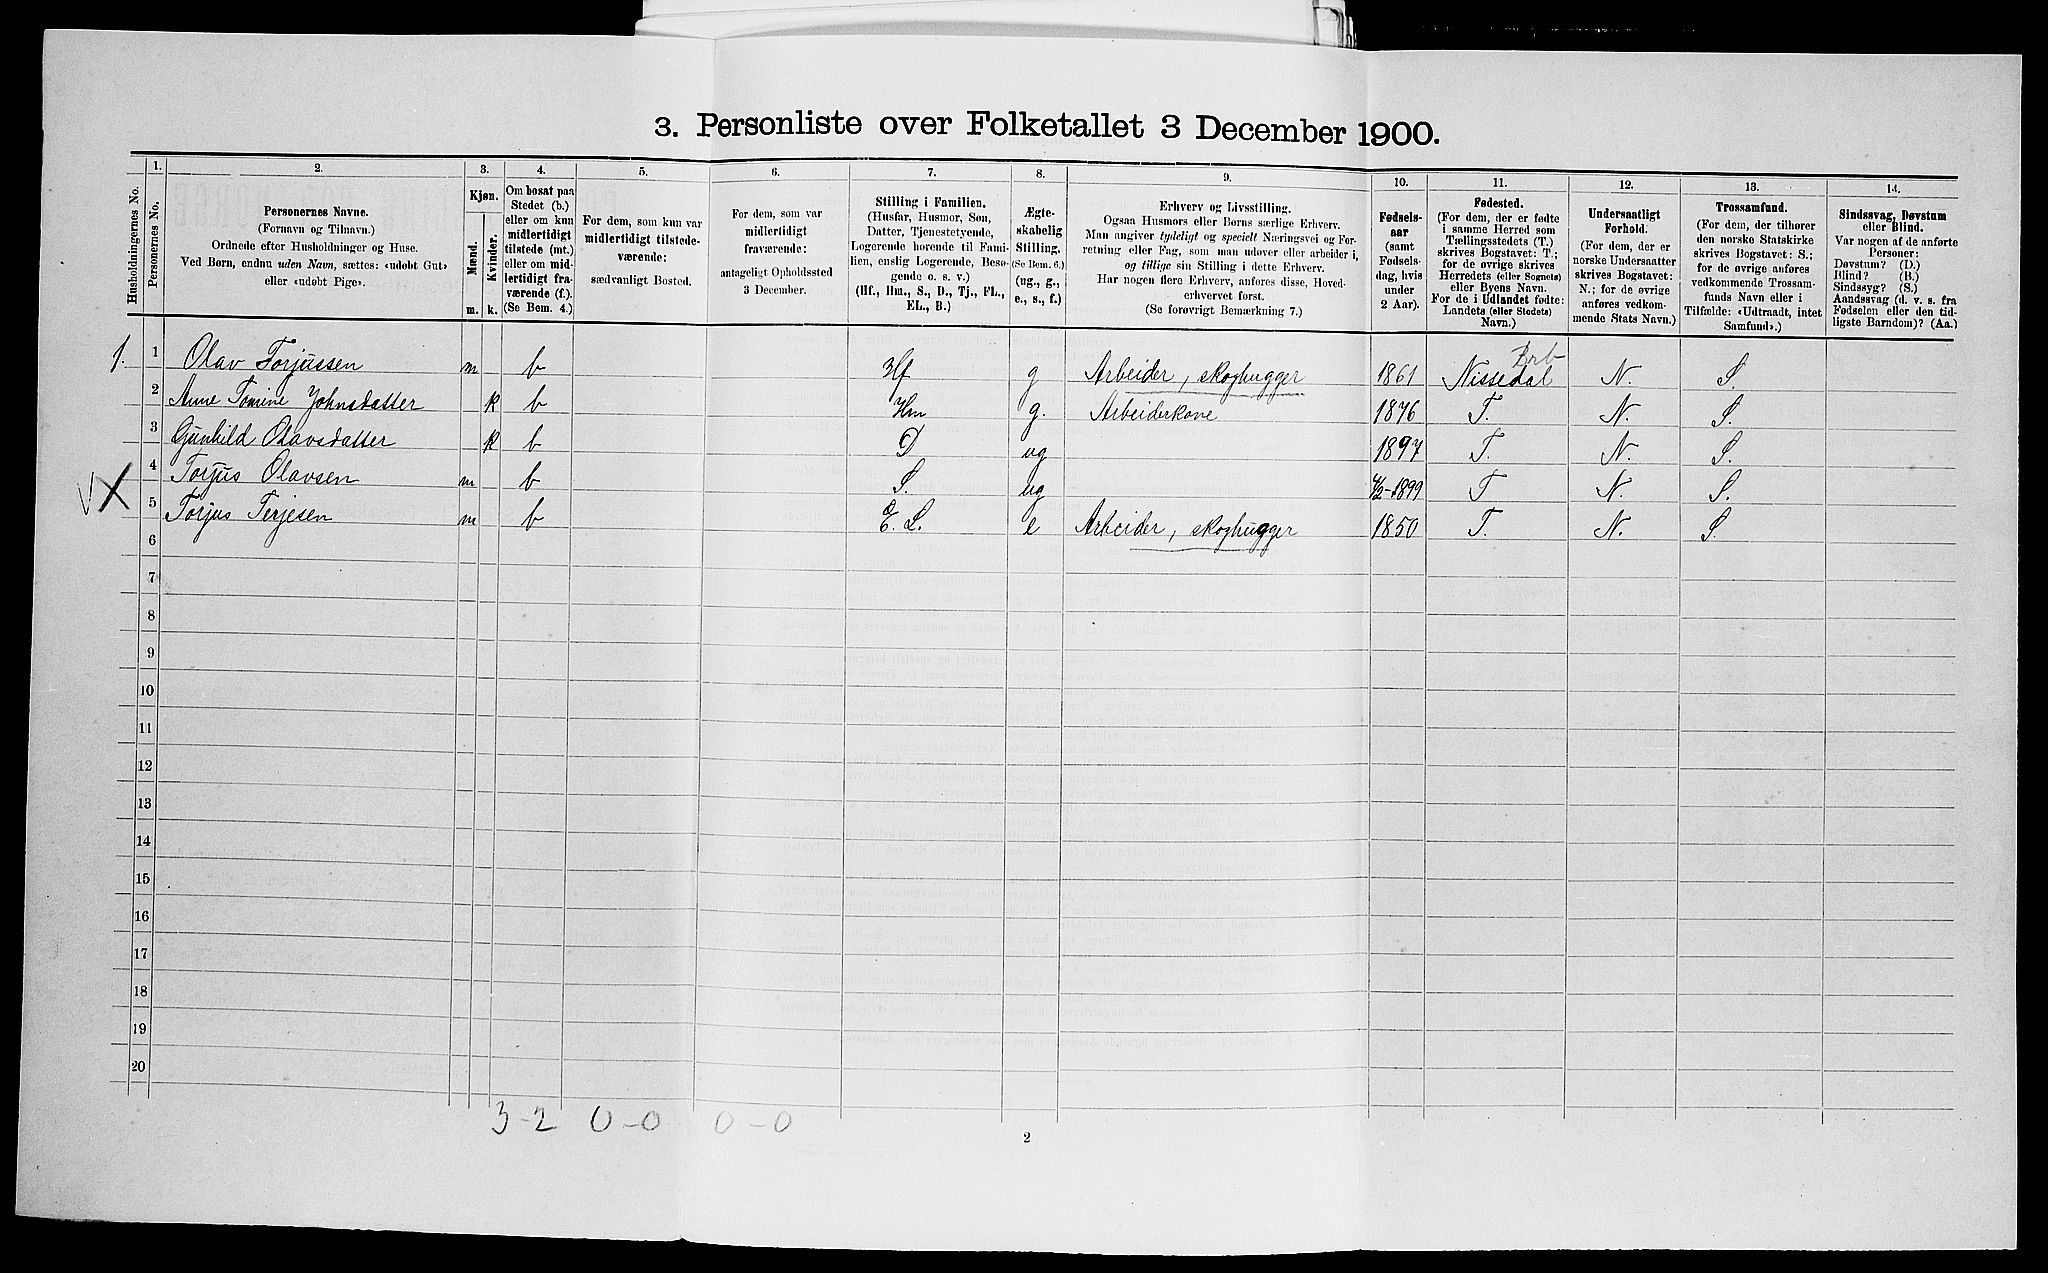 3. Personliste over Folketallet 3 December 1900.
1. 2. 3. 4. 5. 6. 7. 8. 9. 10. 11. 12. 13. 14.
Husholdningernes No.
Personernes No.
Personernes Navne.
(Fornavn og Tilnavn.)
Ordnede efter Husholdninger og Huse.
Ved Børn, endnu uden Navn, sættes: «udøbt Gut»
eller «udøbt Pige».
Kjøn.
Mænd.
Kvinder.
m. k.
Om bosat paa
Stedet (b.)
eller om kun
midlertidigt
tilstede (mt.)
eller om mid-
lertidigt fra-
værende (f.).
(Se Bem. 4.)
For dem, som kun var
midlertidigt tilstede-
værende:
sædvanligt Bosted.
For dem, som var
midlertidigt
fraværende:
antageligt Opholdssted
3 December.
Stilling i Familien.
(Husfar, Husmor, Søn,
Datter, Tjenestetyende,
Logerende hørende til Fami-
lien, enslig Logerende, Besø-
gende o. s. v.)
(Hf., Hm., S., D., Tj., FL.,
EL., B.)
Ægte-
skabelig
Stilling.
(Se Bem. 6.)
(ug., g.,
e., s., f.)
Erhverv og Livsstilling.
Ogsaa Husmors eller Børns særlige Erhverv.
Man angiver tydeligt og specielt Næringsvei og For-
retning eller Fag, som man udøver eller arbeider i,
og tillige sin Stilling i dette Erhverv.
Har nogen flere Erhverv, anføres disse, Hoved-
erhvervet først.
(Se forøvrigt Bemærkning 7.)
Fødsels-
aar
(samt
Fødsels-
dag, hvis
under
2 Aar).
Fødested.
(For dem, der er fødte
i samme Herred som
Tællingsstedets (T.)
skrives Bogstavet: T.;
for de øvrige skrives
Herredets (eller Sognets)
eller Byens Navn.
For de i Udlandet fødte:
Landets (eller Stedets)
Navn.)
Undersaatligt
Forhold.
(For dem, der er
norske Undersaatter
skrives Bogstavet:
N.; for de øvrige
anføres vedkom-
mende Stats Navn.)
Trossamfund.
(For dem, der tilhører
den norske Statskirke
skrives Bogstavet: S.;
for de øvrige anføres
vedkommende Trossam-
funds Navn eller i
Tilfælde: «Udtraadt, intet
Samfund».)
Sindssvag, Døvstum
eller Blind.
Var nogen af de anførte
Personer:
Døvstum? (D.)
Blind? (B.)
Sindssyg? (S.)
Aandssvag (d. v. s. fra
Fødselen eller den tid-
ligste Barndom)? (Aa.)
1. 1 Olav Torjussen m b Hf g Arbeider, skoghugger 1861 Nissedal Brb N. S.
2 Anne Tomine Johnsdatter k b Hm g. Arbeiderkone 1876 T. N. S.
3 Gunhild Olavsdatter k b D ug 1897 T. N. S.
4 Torjus Olavsen m b S. ug 4/2-1899 T N. S.
V X 5 Torjus Terjesen m b E. L. e Arbeider, skoghugger 1850 T. N. S.
6
7
8
9
10
11
12
13
14
15
16
17
18
19
20
3-2 0-0 0-0
2